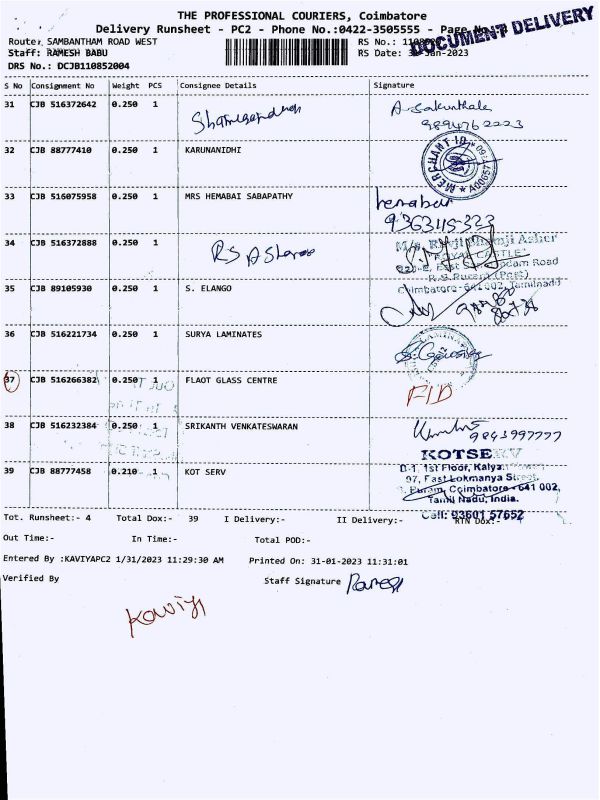 THE PROFESSIONAL COURIERS, Coimbatore
Delivery Runsheet - PC2 - Phone No.:0422-3505555 - Page
DOCUMENT DELIVERY
Route: SAMBANTHAM ROAD WEST
RS No.:
Staff: RAMESH BABU
RS Date: -Jan-2023
DRS No.: DCJB110852004
S No Consignment No Weight PCS Consignee Details Signature
31 CJB 516372642 0.250 1
A. Sakunthala
9894762223
32 CJB 88777410 0.250 1 KARUNANIDHI
MERCHANT-ID
33 CJB 516075958 0.250 1 MRS HEMABAI SABAPATHY
hemabai
34 CJB 516372888 0.250 1
M/s. Ravji Asher
"ROYAL CASTLE"
East Road
(Post)
Coimbatore-641 002, Tamilnadu
35 CJB 89105930 0.250 1 S. ELANGO
36 CJB 516221734 0.250 1 SURYA LAMINATES
37 CJB 516266382 0.250 1 FLAOT GLASS CENTRE
FID
38 CJB 516232384 0.250 1 SRIKANTH VENKATESWARAN
9843997777
39 CJB 88777458 0.210 1 KOT SERV
KOTSERV
D-1, 1st Floor, Kalyan
97, East Lokmanya Street,
R.S. Puram, Coimbatore - 641 002,
Tamil Nadu, India.
Cell: 93601 57652
Tot. Runsheet:- 4 Total Dox:- 39 I Delivery:- II Delivery:- RTN Dox:-
Out Time:- In Time:- Total POD:-
Entered By :KAVIYAPC2 1/31/2023 11:29:30 AM Printed On: 31-01-2023 11:31:01
Verified By Staff Signature Ramesh
Kaviya